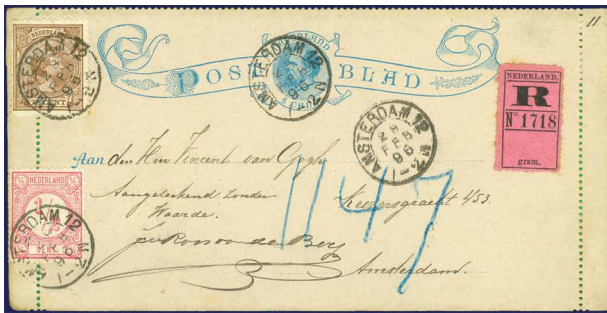 11
NEDERLAND
CENT
AMSTERDAM 12
NEDERLAND
POSTBLAD
AMSTERDAM 12
AMSTERDAM 12
28
FEB
96
NEDERLAND.
R
N° 1718
gram.
Aan den Heer Vincent van Gogh
Aangeteekend zonder
Keizersgracht 453.
Waarde.
Amsterdam.
1147
NEDERLAND
AMSTERDAM 12